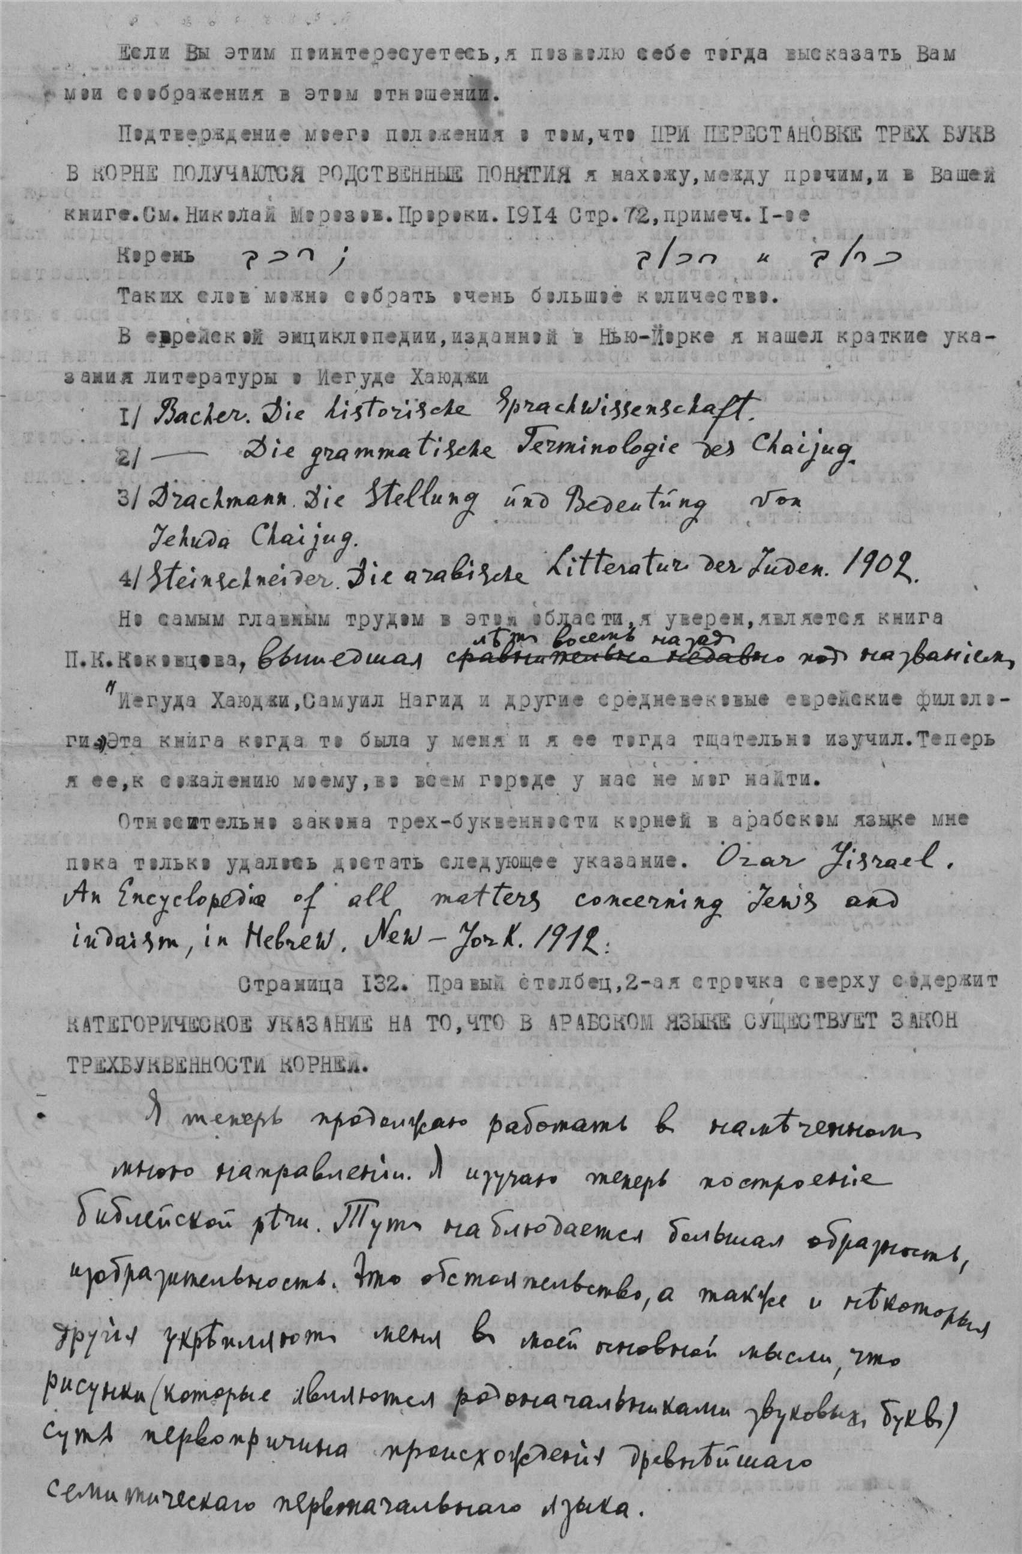 Если Вы этим поинтересуетесь,я позволю себе тогда высказать Вам
мои соображения в этом отношении.
Подтверждение моего положения о том,что ПРИ ПЕРЕСТАНОВКЕ ТРЕХ БУКВ
В КОРНЕ ПОЛУЧАЮТСЯ РОДСТВЕННЫЕ ПОНЯТИЯ я нахожу,между прочим,и в Вашей
книге.См.Николай Морозов.Пророки.1914 Стр.72,примеч.1-ое
Корень
Таких слов можно собрать очень большое количество.
В еврейской энциклопедии,изданной в Нью-Йорке я нашел краткие ука-
зания литературы о Иегуде Хаюджи
1/ Bacher. Die historische Sprachwissenschaft.
2/ — Die grammatische Terminologie des Chaijug.
3/ Drachmann Die Stellung und Bedeutung von
Jehuda Chaijug.
4/ Steinschneider. Die arabische Litteratur der Juden. 1902.
Но самым главным трудом в этой области,я уверен,является книга
лѣтъ восемь назад
П.К.Коковцова, вышедшая сравнительно недавно подъ названіемъ
"Иегуда Хаюджи,Самуил Нагид и другие средневековые еврейские филоло-
ги". Эта книга когда то была у меня и я ее тогда тщательно изучил.Теперь
я ее,к сожалению моему,во всем городе у нас не мог найти.
Относительно закона трех-буквенности корней в арабском языке мне
пока только удалось достать следующее указание. Ozar Jisrael.
An Encyclopedia of all matters concerning Jews and
iudaism, in Hebrew. New – Jork. 1912:
Страница 132. Правый столбец,2-ая строчка сверху содержит
КАТЕГОРИЧЕСКОЕ УКАЗАНИЕ НА ТО,ЧТО В АРАБСКОМ ЯЗЫКЕ СУЩЕСТВУЕТ ЗАКОН
ТРЕХБУКВЕННОСТИ КОРНЕЙ.
Я теперь продолжаю работать въ намѣченномъ
мною направленіи. Я изучаю теперь построеніе
библейской рѣчи. Тутъ наблюдается большая образность,
изобразительность. Это обстоятельство, а также и нѣкоторыя
другія укрѣпляютъ меня въ моей основной мысли, что
рисунки (которые являются родоначальниками звуковыхъ буквъ)
суть первопричина происхожденія древнѣйшаго
семитическаго первоначальнаго языка.